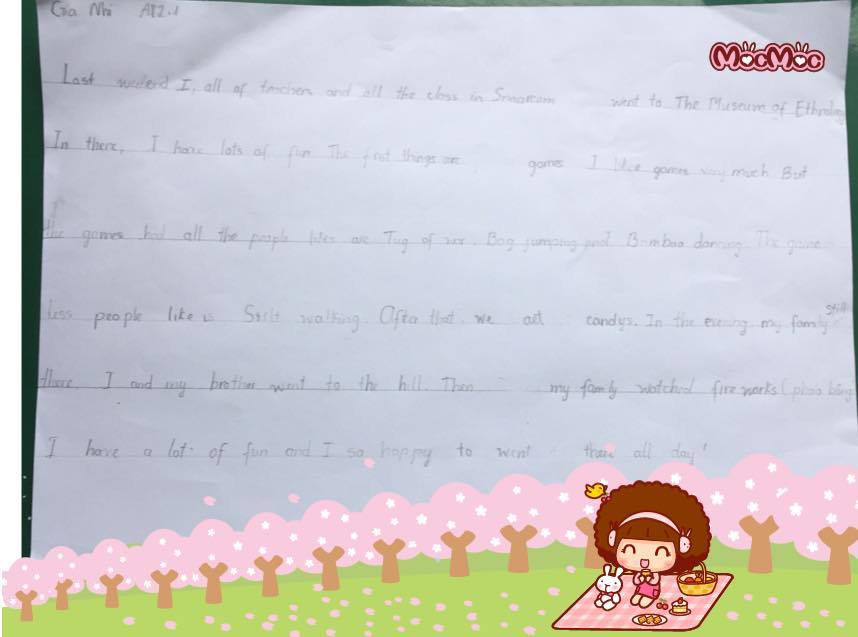 Gia Nhi AT2.1
MocMoc
Last weekend I, all of teachers and all the class in Smartcom went to The Museum of Ethnology
In there, I have lots of fun The first things are games I like games very much But
the games had all the people likes are Tug of war. Bag jumping and Bamboo dancing. The game
less people like is Stilt walking After that we eat candys. In the evening my family still
there. I and my brother went to the hill. Then my family watched fireworks (pháo bông
I have a lot of fun and I so happy to went there all day!